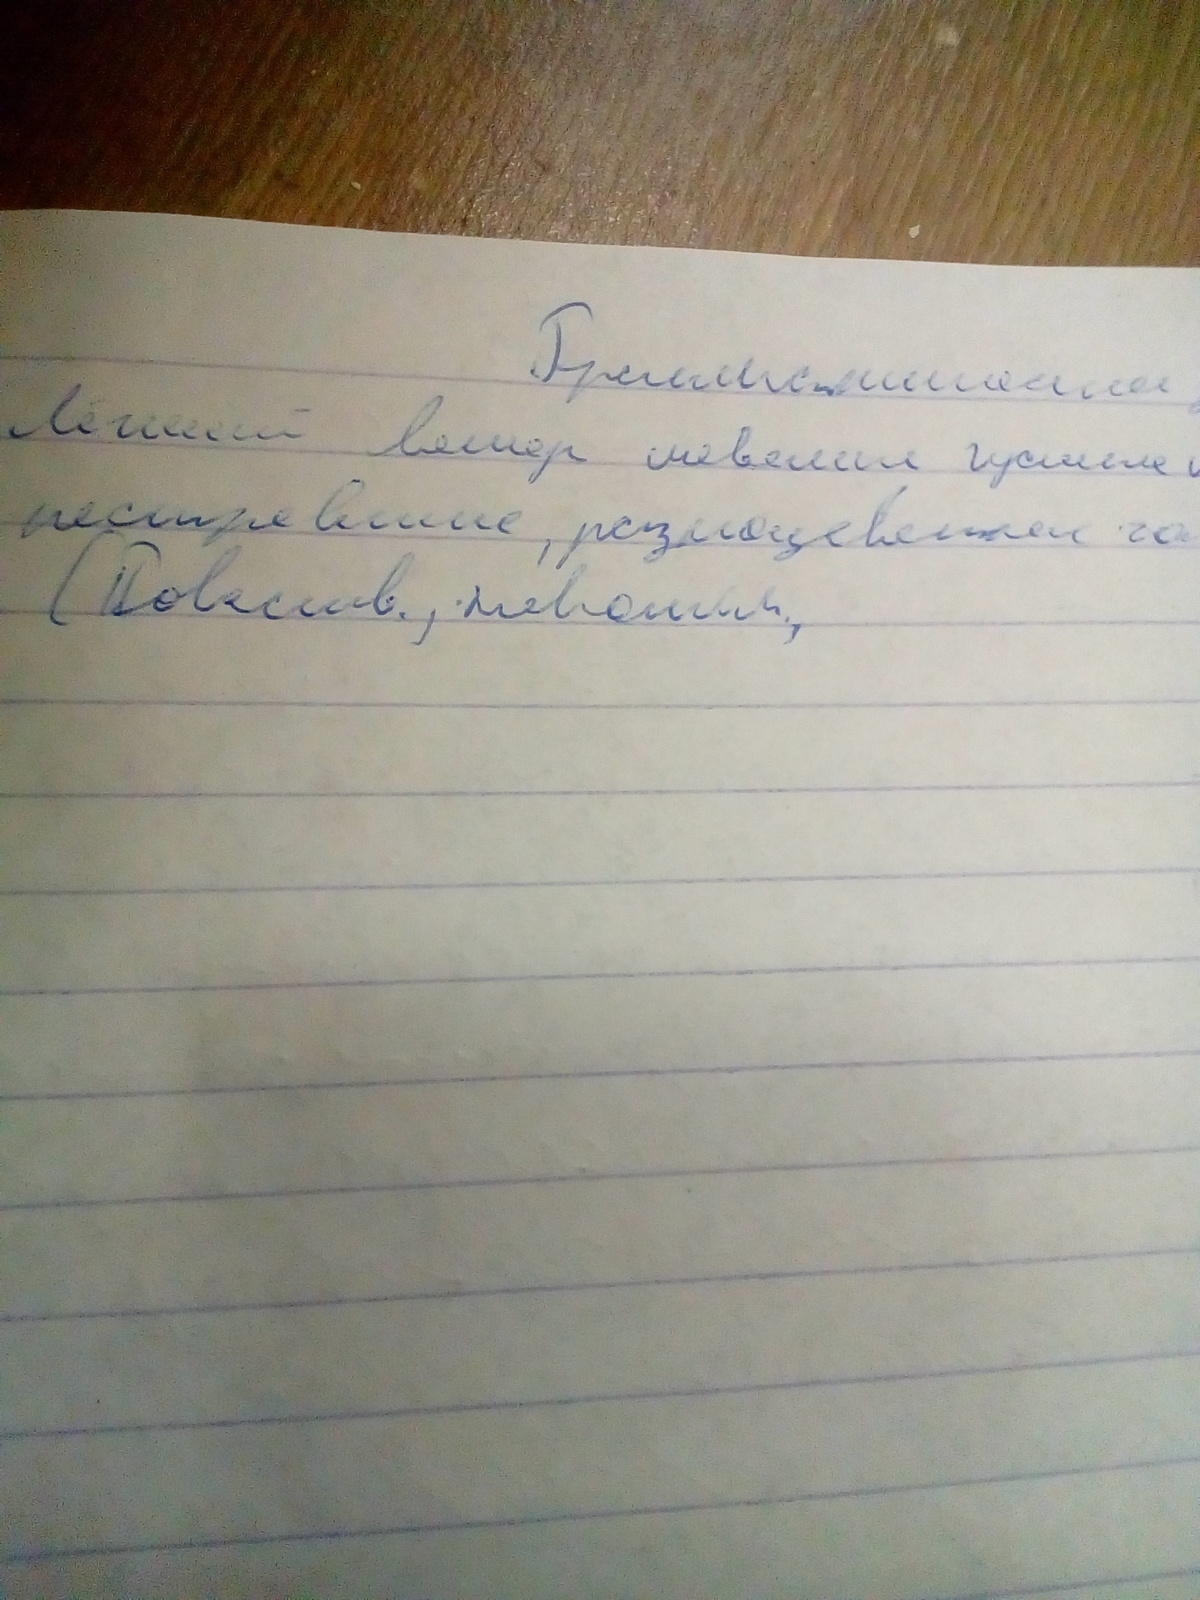 Грамматическое
Лёгкий ветер шевелил густые
пестревшие, разноцветн
(Повеств., невоскл.,